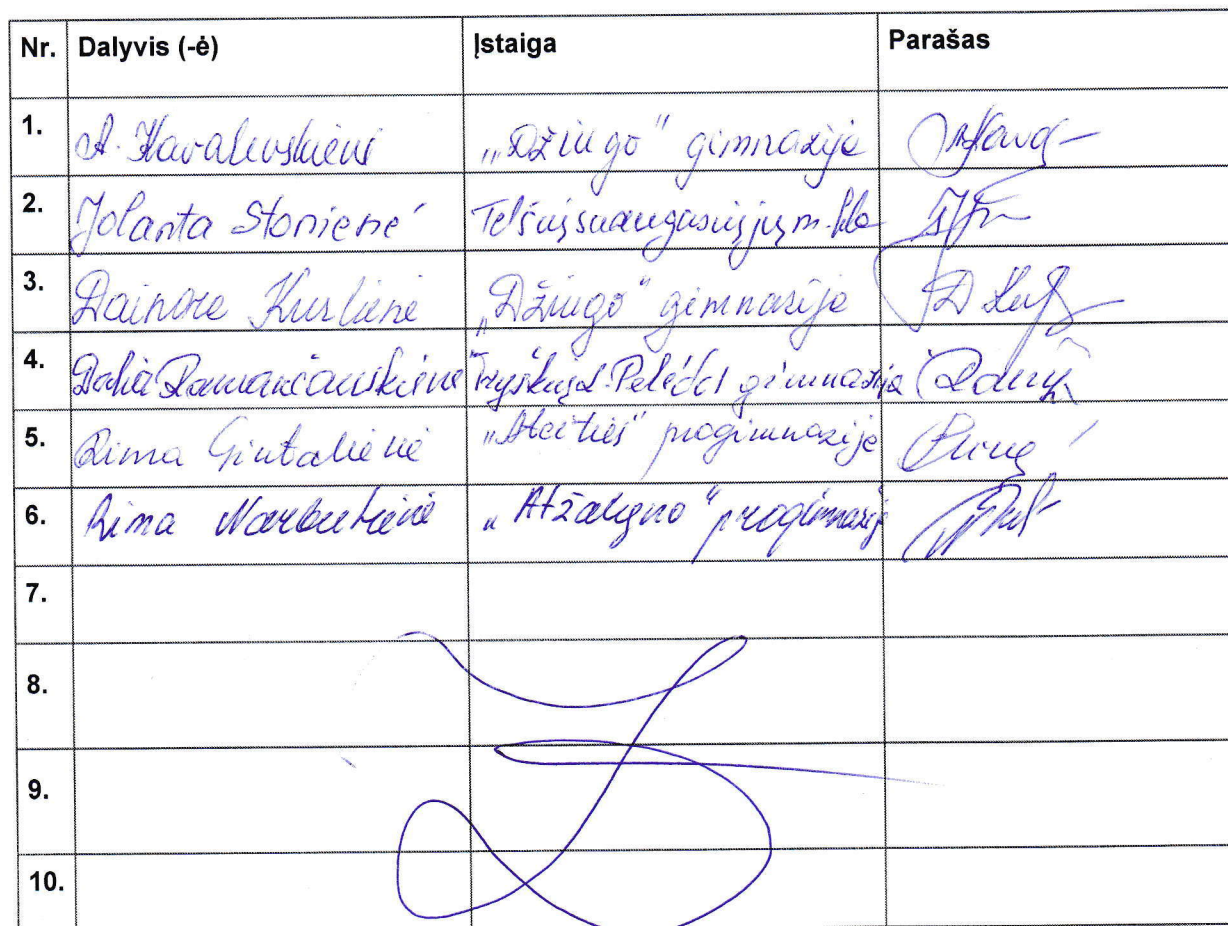 Nr. Dalyvis (-ė) Įstaiga Parašas
1. A. Kavaliauskienė „Džiugo" gimnazija
2. Jolanta Stonienė Telšių suaugusiųjų m-kla
3. Dainora Kuslienė „Džiugo" gimnazija
4. Dalia Ramančauskienė Tryškių L. Pelėdos gimnazija
5. Rima Gintalienė „Ateities" progimnazija
6. Rima Narbutienė „Atžalyno" progimnazija
7.
8.
9.
10.